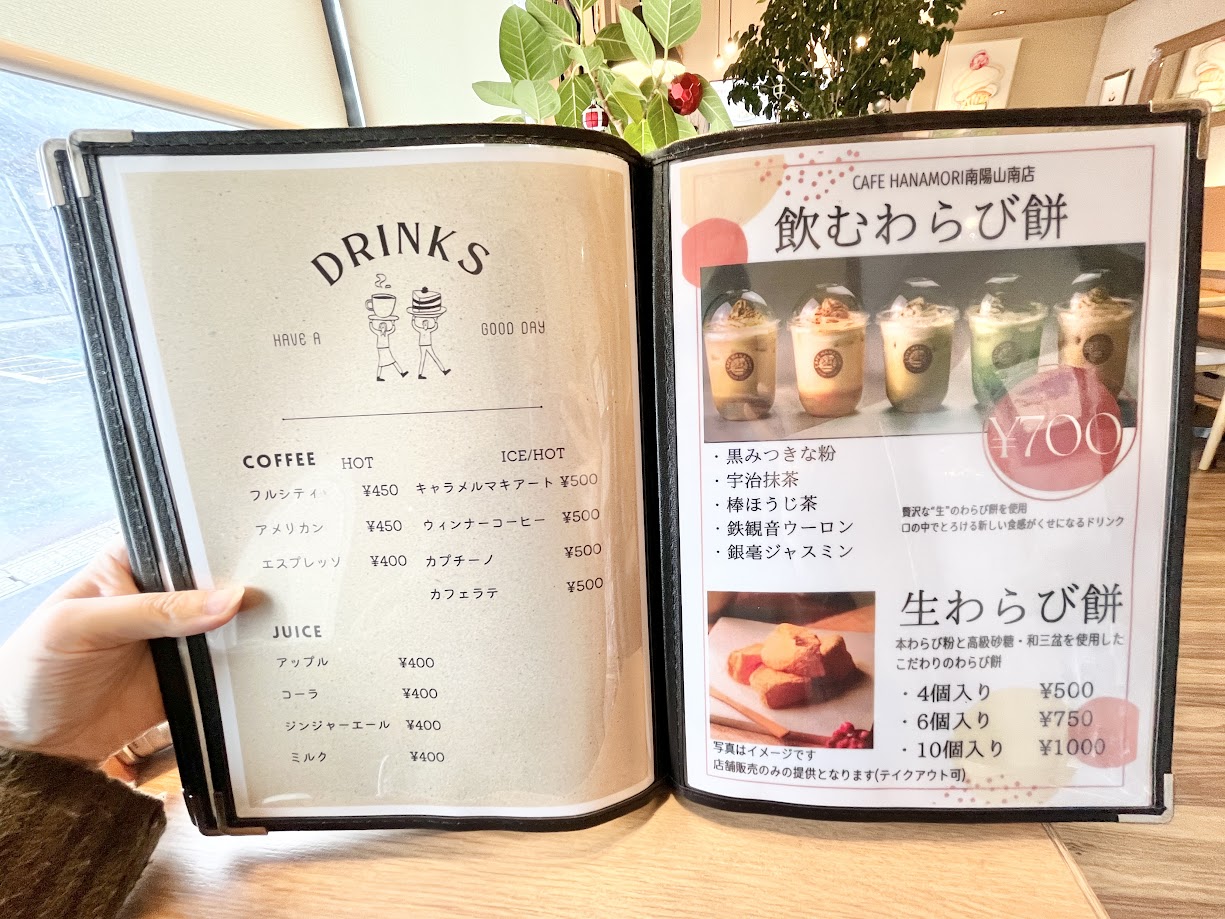 DRINKS
HAVE A GOOD DAY
COFFEE HOT
フルシティ ¥450
アメリカン ¥450
エスプレッソ ¥400
ICE/HOT
キャラメルマキアート ¥500
ウィンナーコーヒー ¥500
カプチーノ ¥500
カフェラテ ¥500
JUICE
アップル ¥400
コーラ ¥400
ジンジャーエール ¥400
ミルク ¥400
CAFE HANAMORI南陽山南店
飲むわらび餅
¥700
・黒みつきな粉
・宇治抹茶
・棒ほうじ茶
・鉄観音ウーロン
・銀毫ジャスミン
贅沢な"生"のわらび餅を使用
口の中でとろける新しい食感がくせになるドリンク
生わらび餅
本わらび粉と高級砂糖・和三盆を使用した
こだわりのわらび餅
・4個入り ¥500
・6個入り ¥750
・10個入り ¥1000
写真はイメージです
店舗販売のみの提供となります(テイクアウト可)